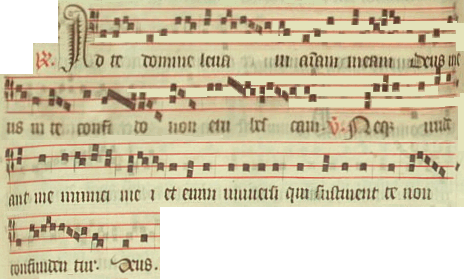 R. Ad te domine leva vi a(n)i(m)am meam Deus me
us in te confi do non eru bes cam. V. Neq(ue) irride
ant me inimici me i et eni(m) universi qui sustinent te non
confunden tur. Deus.